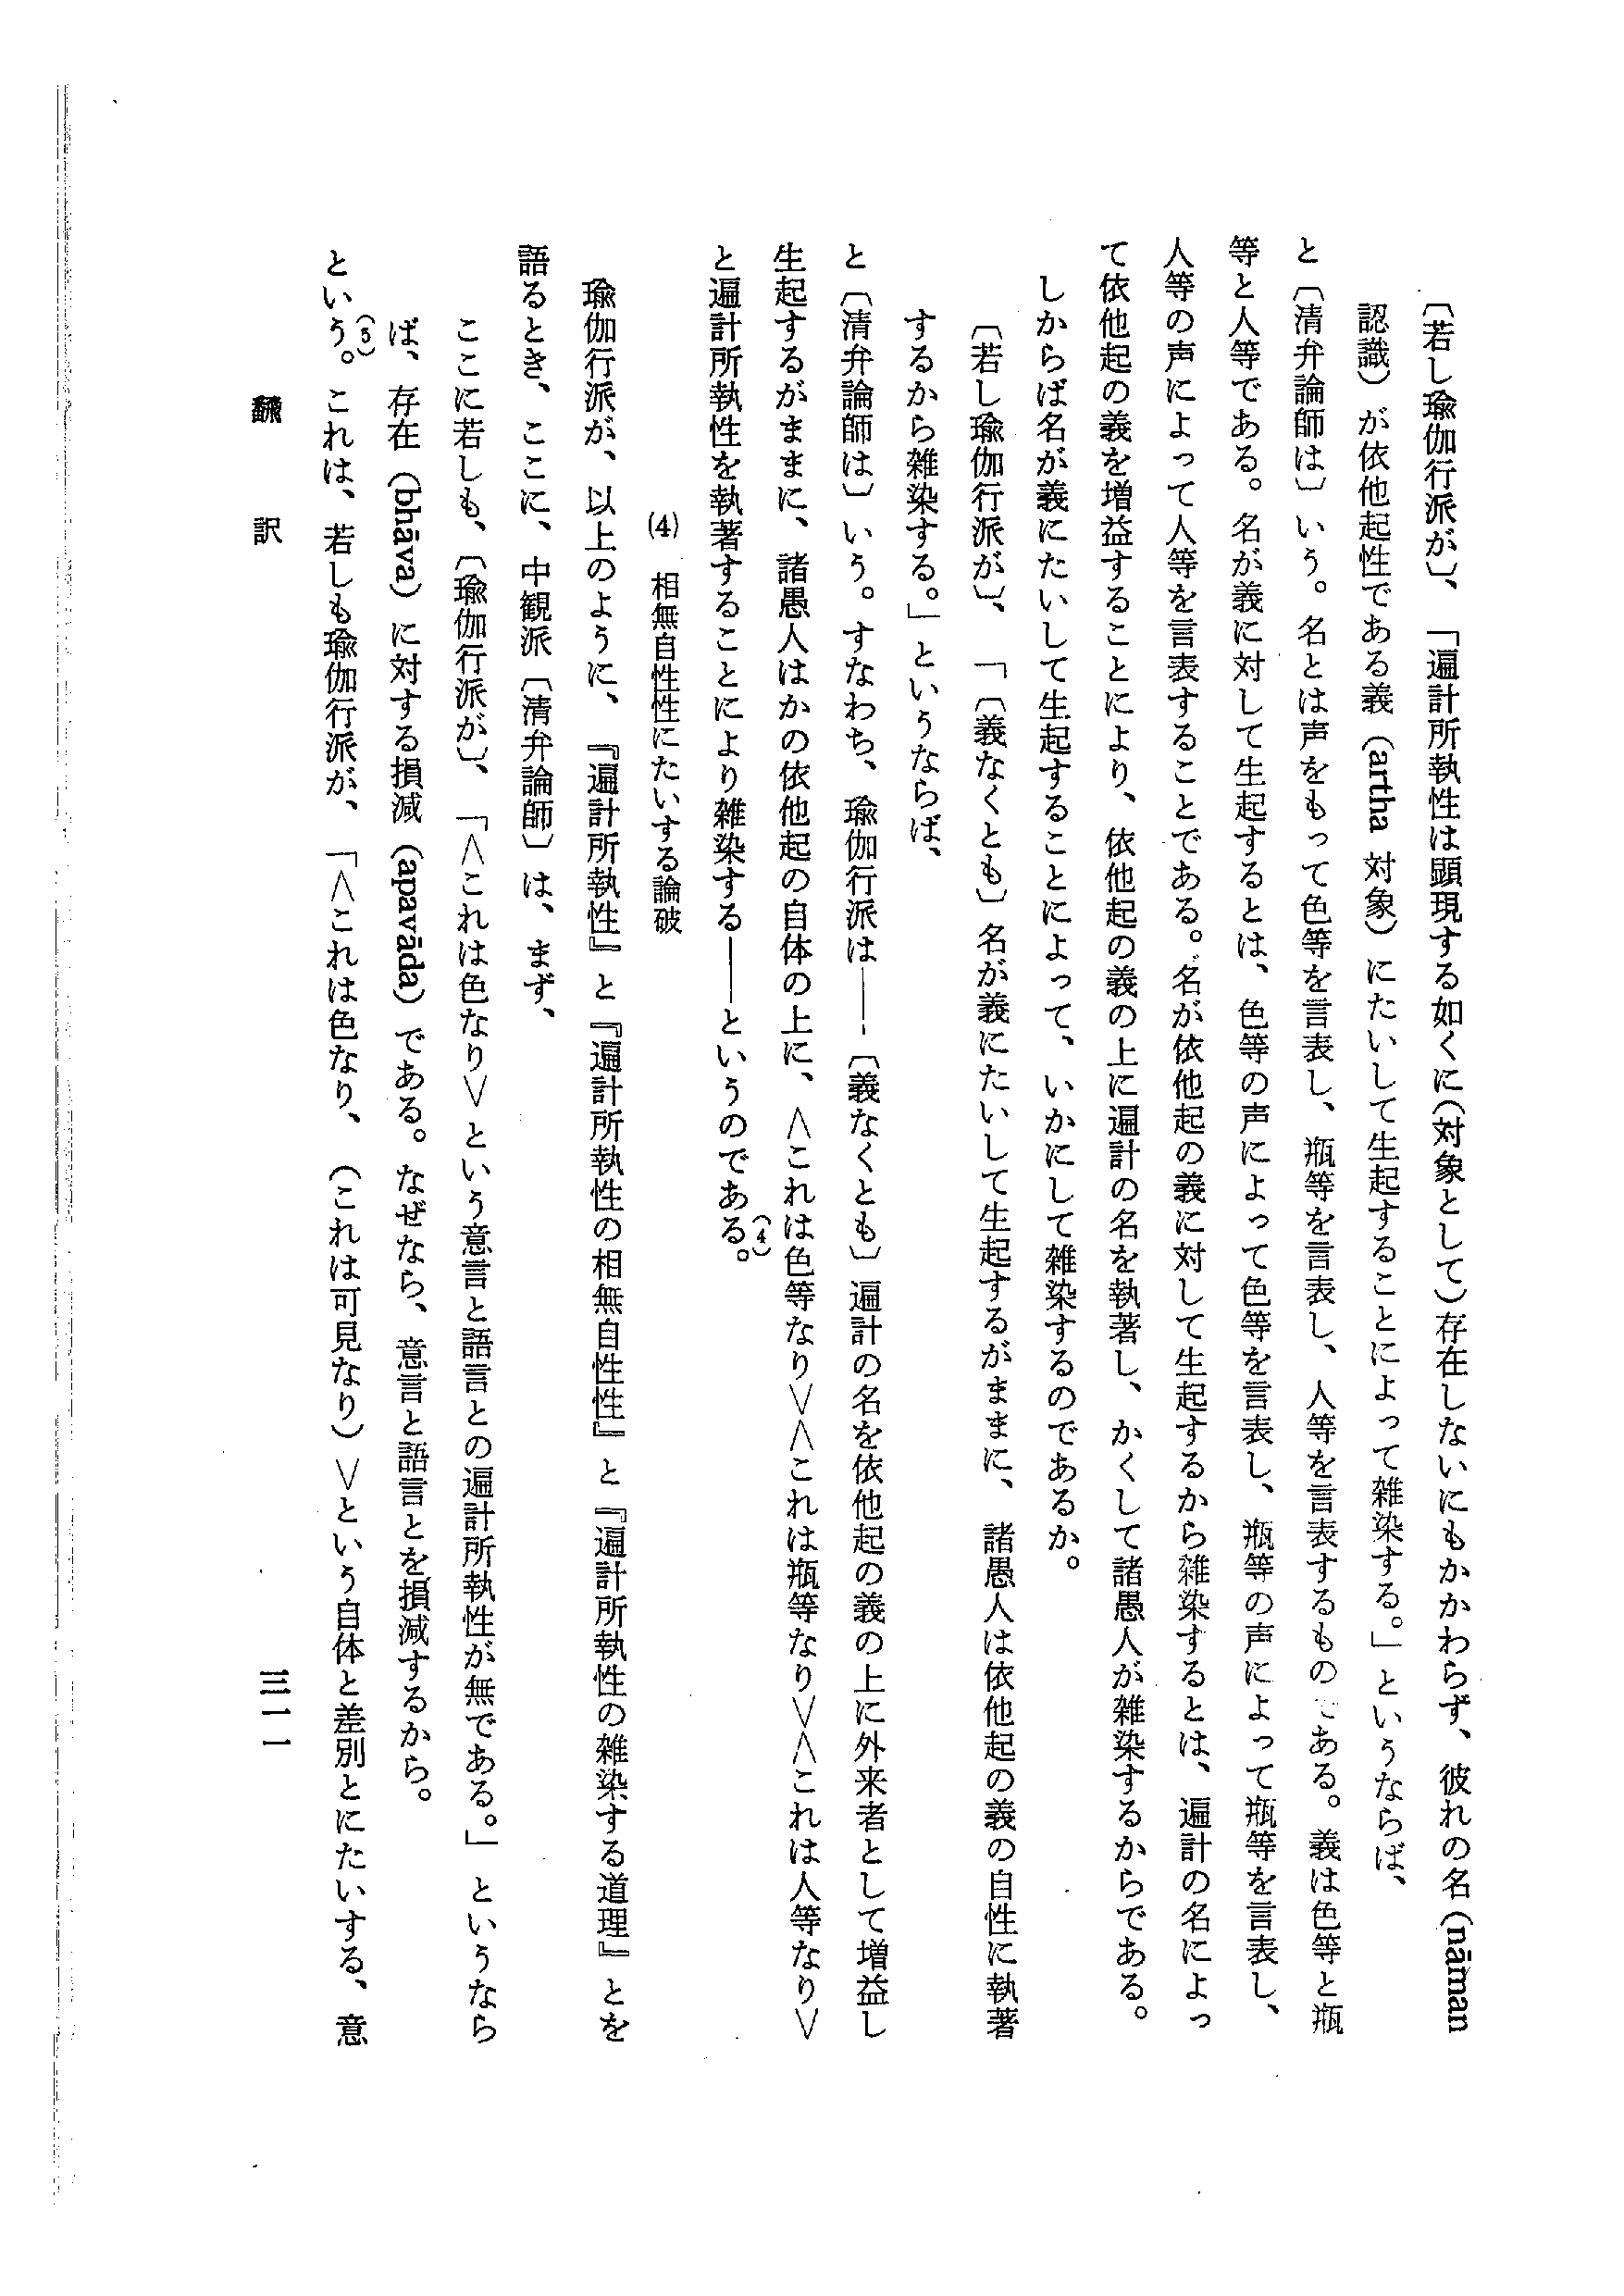 〔若し瑜伽行派が〕、「遍計所執性は顕現する如くに(対象として)存在しないにもかかわらず、彼れの名(nāman
認識)が依他起性である義(artha 対象)にたいして生起することによって雑染する。」というならば、
と〔清弁論師は〕いう。名とは声をもって色等を言表し、瓶等を言表し、人等を言表するものである。義は色等と瓶
等と人等である。名が義に対して生起するとは、色等の声によって色等を言表し、瓶等の声によって瓶等を言表し、
人等の声によって人等を言表することである。名が依他起の義に対して生起するから雑染するとは、遍計の名によっ
て依他起の義を増益することにより、依他起の義の上に遍計の名を執著し、かくして諸愚人が雑染するからである。
しからば名が義にたいして生起することによって、いかにして雑染するのであるか。
〔若し瑜伽行派が〕、「〔義なくとも〕名が義にたいして生起するがままに、諸愚人は依他起の義の自性に執著
するから雑染する。」というならば、
と〔清弁論師は〕いう。すなわち、瑜伽行派は——〔義なくとも〕遍計の名を依他起の義の上に外来者として増益し
生起するがままに、諸愚人はかの依他起の自体の上に、〈これは色等なり〉〈これは瓶等なり〉〈これは人等なり〉
と遍計所執性を執著することにより雑染する——というのである。(4)
(4) 相無自性性にたいする論破
瑜伽行派が、以上のように、『遍計所執性』と『遍計所執性の相無自性性』と『遍計所執性の雑染する道理』とを
語るとき、ここに、中観派〔清弁論師〕は、まず、
ここに若しも、〔瑜伽行派が〕、「〈これは色なり〉という意言と語言との遍計所執性が無である。」というなら
ば、存在(bhāva)に対する損減(apavāda)である。なぜなら、意言と語言とを損減するから。
という。(5)これは、若しも瑜伽行派が、「〈これは色なり、(これは可見なり)〉という自体と差別とにたいする、意
飜訳
三一一